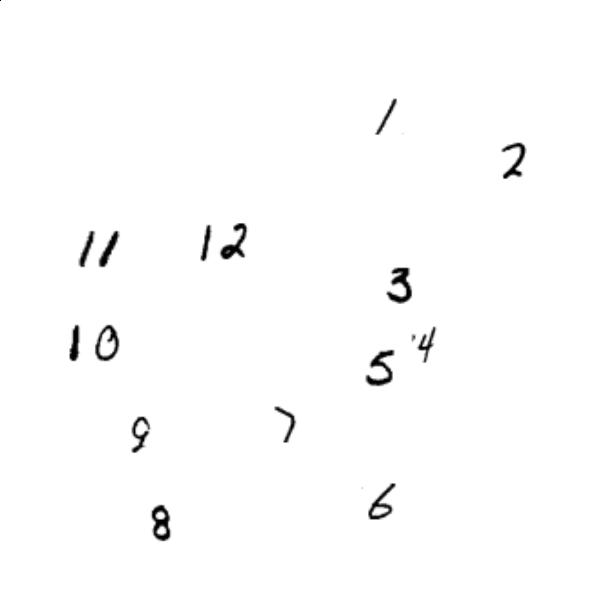 1
2
11 12
3
10 4
5
9 7
6
8